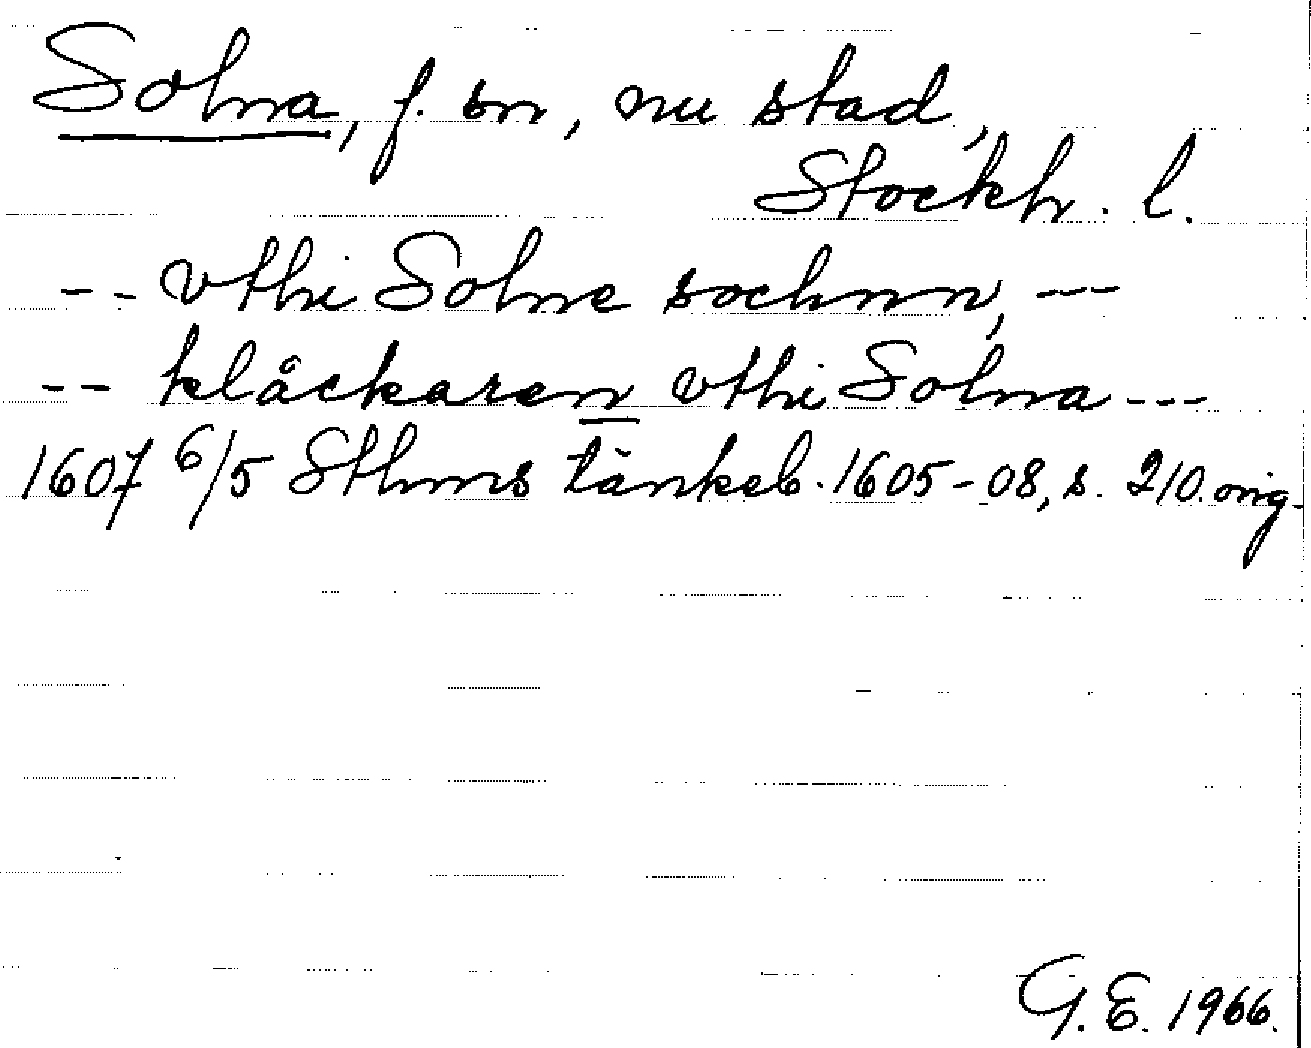 Solna, f. sn, nu stad,
Stockh. l.
-- vthi Solne sochnn, ---
-- klåckaren vthi Solna ---
1607 6/5 Sthms tänkeb. 1605-08, s. 210. orig.
G. E. 1966.